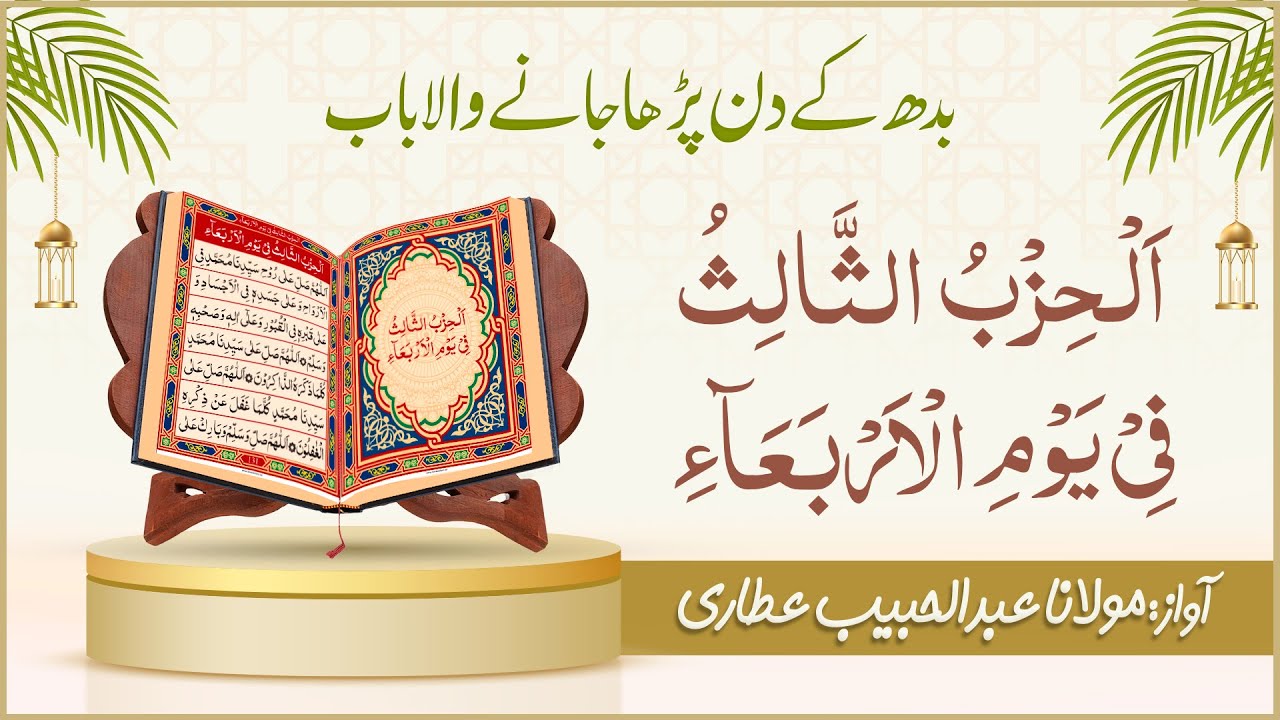 بدھ کے دن پڑھا جانے والا باب
اَلْحِزْبُ الثَّالِثُ
فِیْ یَوْمِ الْاَرْبَعَآءِ
آواز: مولانا عبدالحبیب عطاری
اَلْحِزْبُ الثَّالِثُ
فِیْ یَوْمِ الْاَرْبَعَآءِ
اَلْحِزْبُ الثَّالِثُ فِیْ یَوْمِ الْاَرْبَعَآءِ
اَللّٰهُمَّ صَلِّ عَلٰی رُوْحِ سَیِّدِنَا مُحَمَّدٍ فِی
الْاَرْوَاحِ وَ عَلٰی جَسَدِهٖ فِی الْاَجْسَادِ وَ
عَلٰی قَبْرِهٖ فِی الْقُبُوْرِ وَعَلٰی اٰلِهٖ وَصَحْبِهٖ
وَسَلِّمْ ۞ اَللّٰهُمَّ صَلِّ عَلٰی سَیِّدِنَا مُحَمَّدٍ
كُلَّمَا ذَكَرَهُ الذَّاكِرُوْنَ ۞ اَللّٰهُمَّ صَلِّ عَلٰی
سَیِّدِنَا مُحَمَّدٍ كُلَّمَا غَفَلَ عَنْ ذِكْرِهِ
الْغٰفِلُوْنَ ۞ اَللّٰهُمَّ صَلِّ وَسَلِّمْ وَبَارِكْ عَلٰی